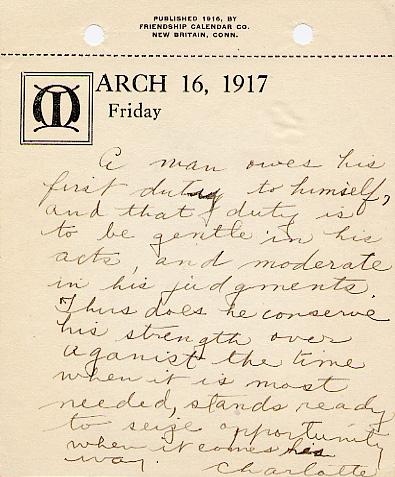 PUBLISHED 1916, BY
FRIENDSHIP CALENDAR CO.
NEW BRITAIN, CONN.
MARCH 16, 1917
Friday
A man owes his
first duty to himself,
and that duty is
to be gentle in his
acts, and moderate
in his judgments.
Thus does he conserve
his strength over
aganist the time
when it is most
needed, stands ready
to seize opportunity
when it comes his
way.
Charlotte